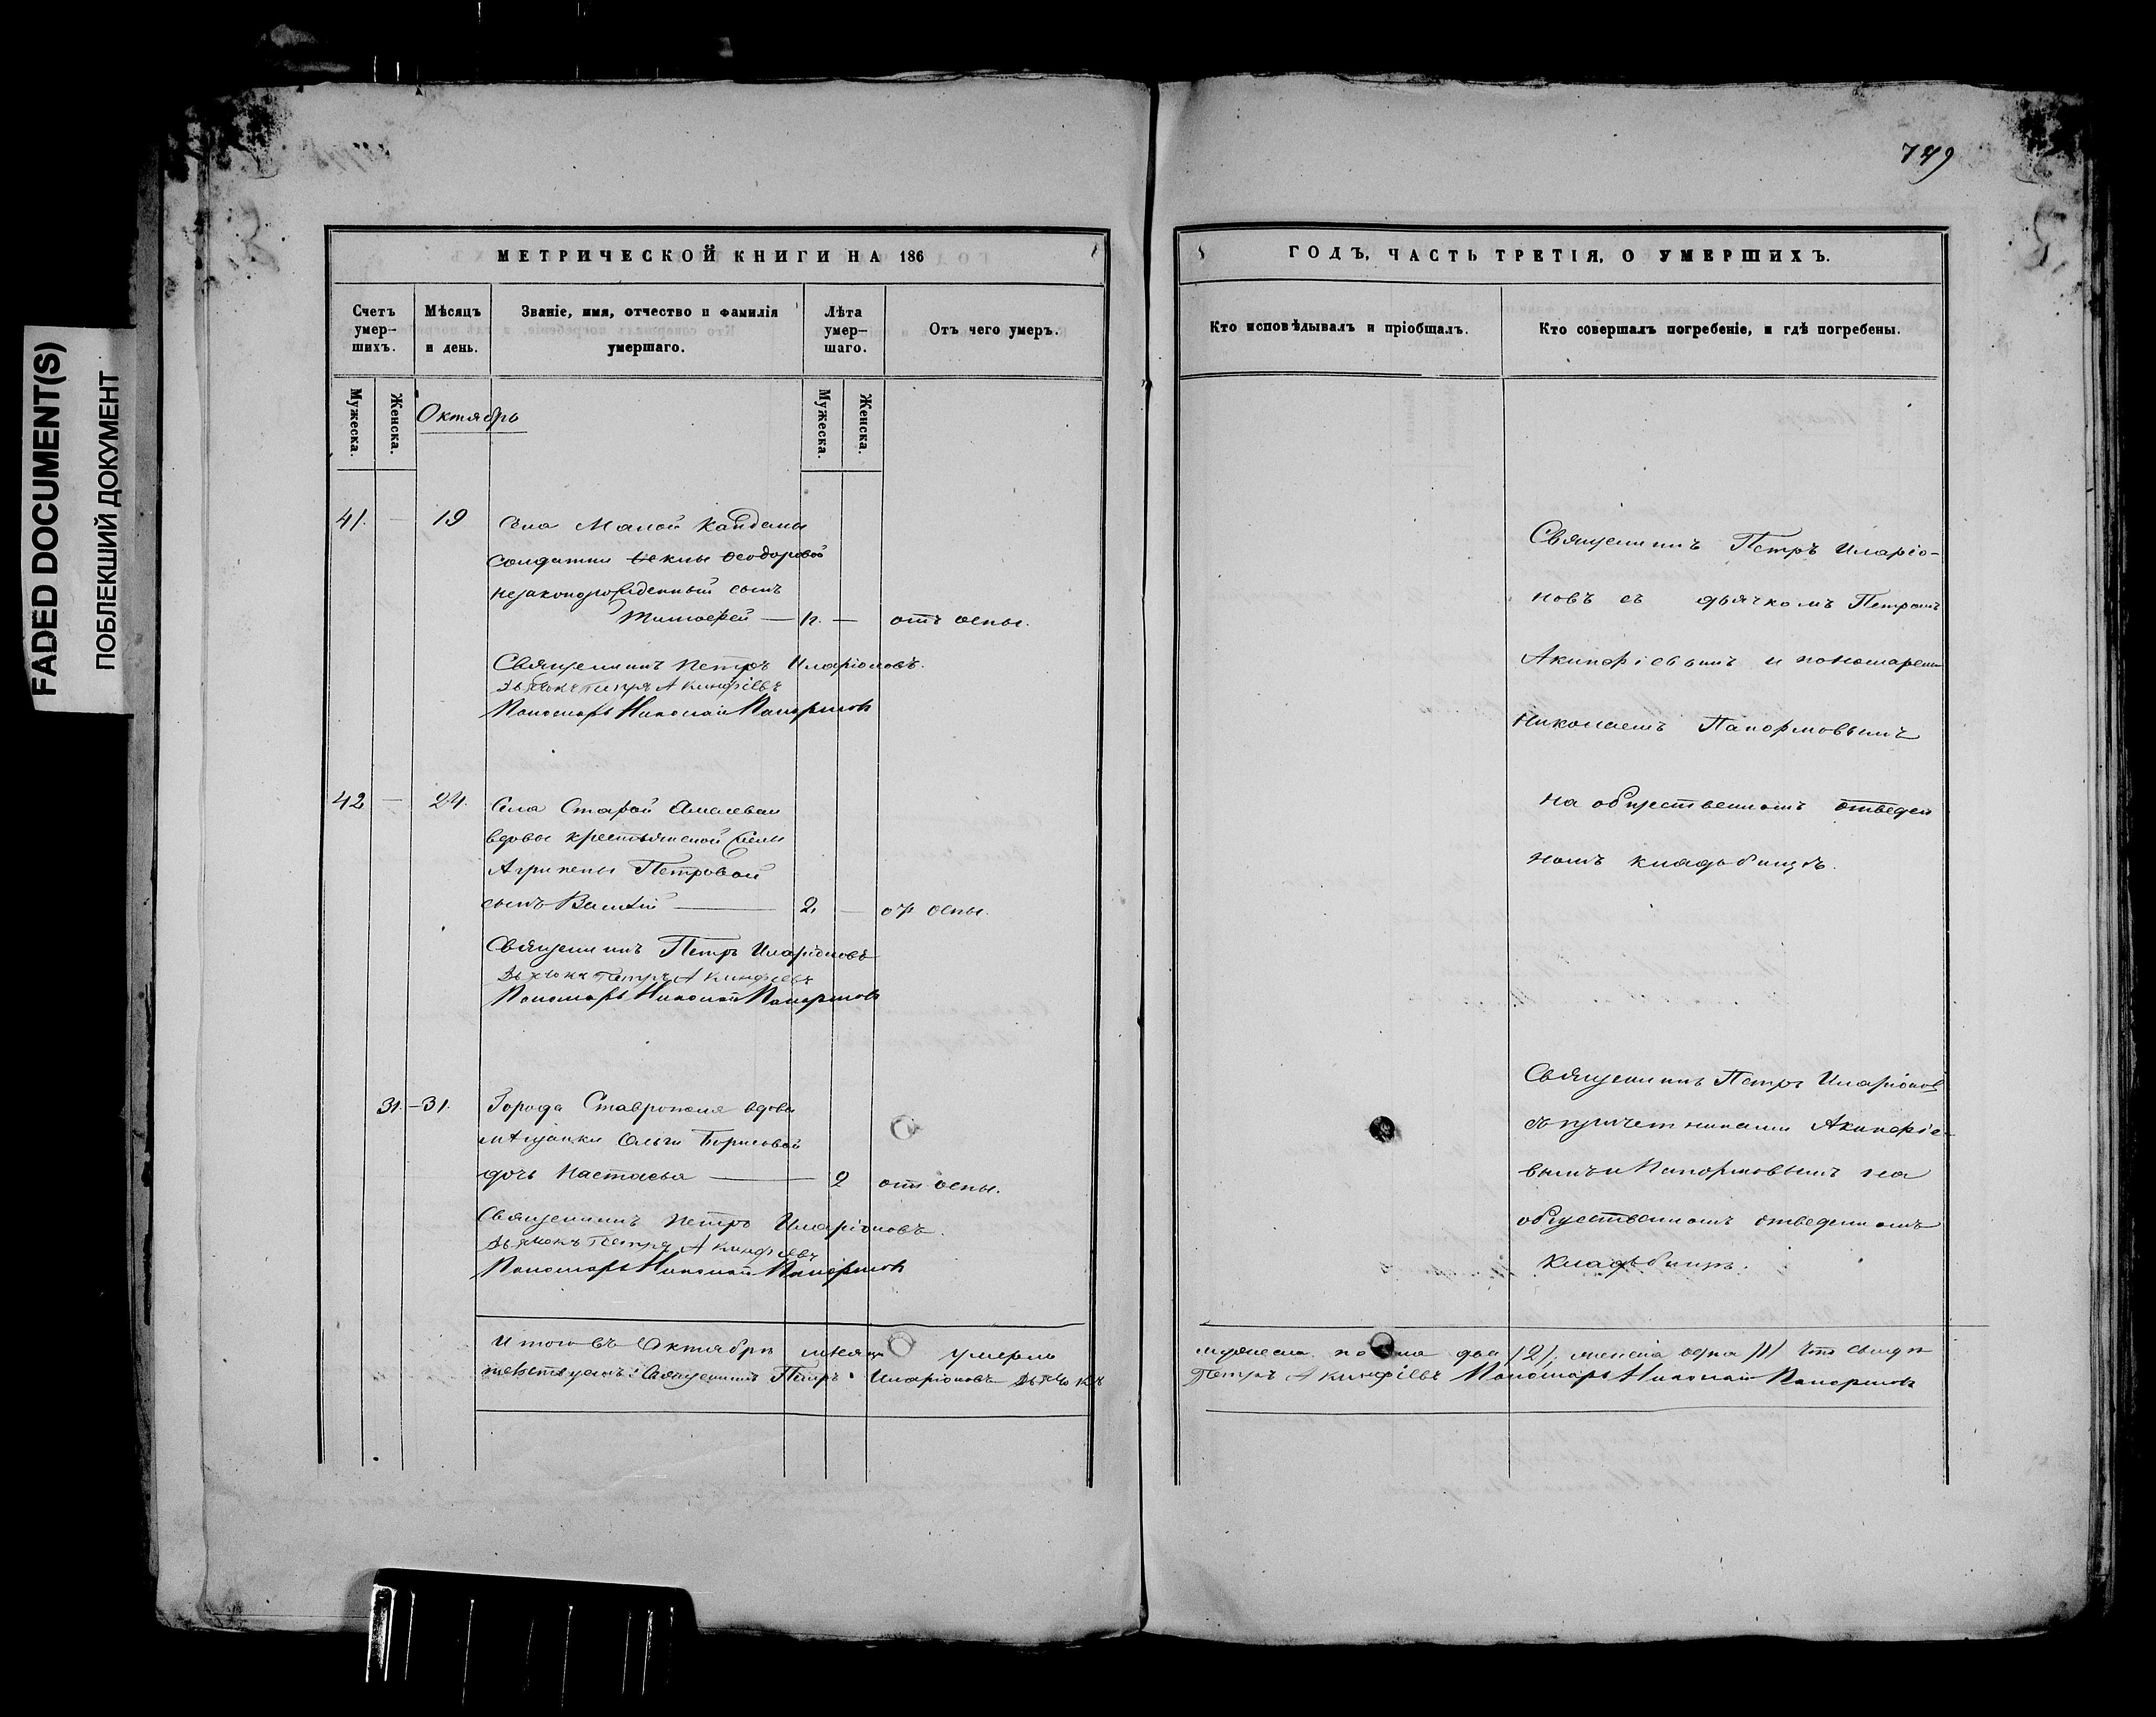 FADED DOCUMENT(S)
ПОБЛЕКШИЙ ДОКУМЕНТ
МЕТРИЧЕСКОЙ КНИГИ НА 186
Счетъ умер-шихъ.
Мѣсяцъ и день.
Званіе, имя, отчество и фамилія умершаго.
Лѣта умер-шаго.
Отъ чего умеръ.
Мужеска.
Женска.
Мужеска.
Женска.
Октябрь
41. — 19 Села Малой Кандалы
солдатки Ѳеклы Ѳеодоровой
незаконорожденный сынъ
Тимофей — — отъ оспы.
Священникъ Петръ Иларіоновъ.
Дьячокъ Петръ Акинфіевъ
Пономарь Николай Панормовъ
42 — 24. Села Старой
вдовы крестьянской
Агрипены Петровой
сынъ — 2 — отъ оспы.
Священникъ Петръ Иларіоновъ
Дьячокъ Петръ Акинфіевъ
Пономарь Николай Панормовъ
31. — 31. Города Ставрополя вдовы
мѣщанки Ольги Борисовой
дочь Настасья — 2 отъ оспы.
Священникъ Петръ Иларіоновъ.
Дьячокъ Петръ Акинфіевъ
Пономарь Николай Панормовъ
Итого въ Октябрѣ мѣсяцѣ умерло
тельствуемъ: Священникъ Петръ Иларіоновъ Дьячокъ
749
ГОДЪ, ЧАСТЬ ТРЕТІЯ, О УМЕРШИХЪ.
Кто исповѣдывалъ и пріобщалъ.
Кто совершалъ погребеніе, и гдѣ погребены.
Священникъ Петръ Иларіо-
новъ съ дьячкомъ Петромъ
Акинфіевымъ и пономаремъ
Николаемъ Панормовымъ
на общественномъ отведен
номъ кладьбищѣ.
Священникъ Петръ Иларіонов
съ причетниками Акинфіе-
вымъ и Панормовымъ на
общественномъ отведенномъ
кладьбищѣ.
мужеска пола два /2/, женска одна /1/ Что свидѣ
Петръ Акинфіевъ Пономарь Николай Панормовъ